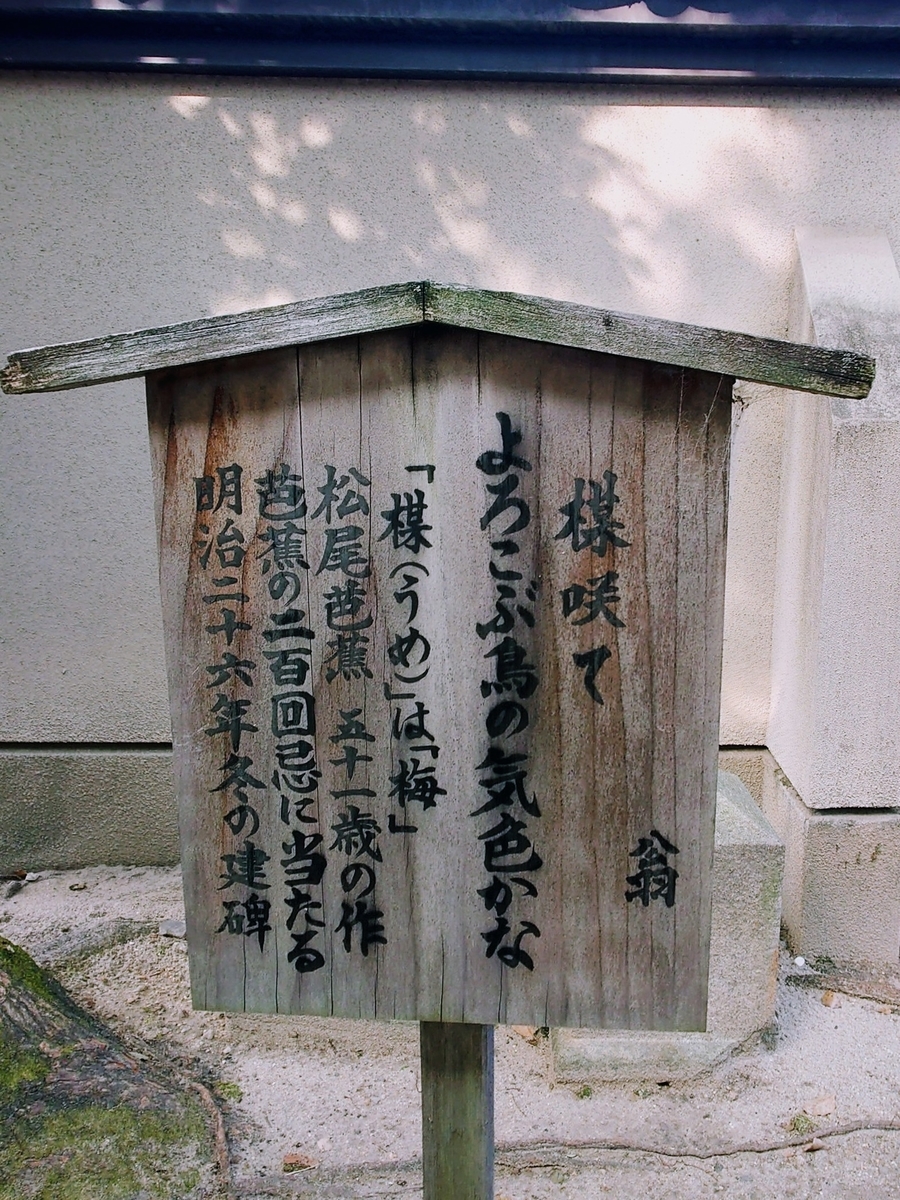 翁
楳咲て
よろこぶ鳥の気色かな
「楳(うめ)」は「梅」
松尾芭蕉 五十一歳の作
芭蕉の二百回忌に当たる
明治二十六年冬の建碑